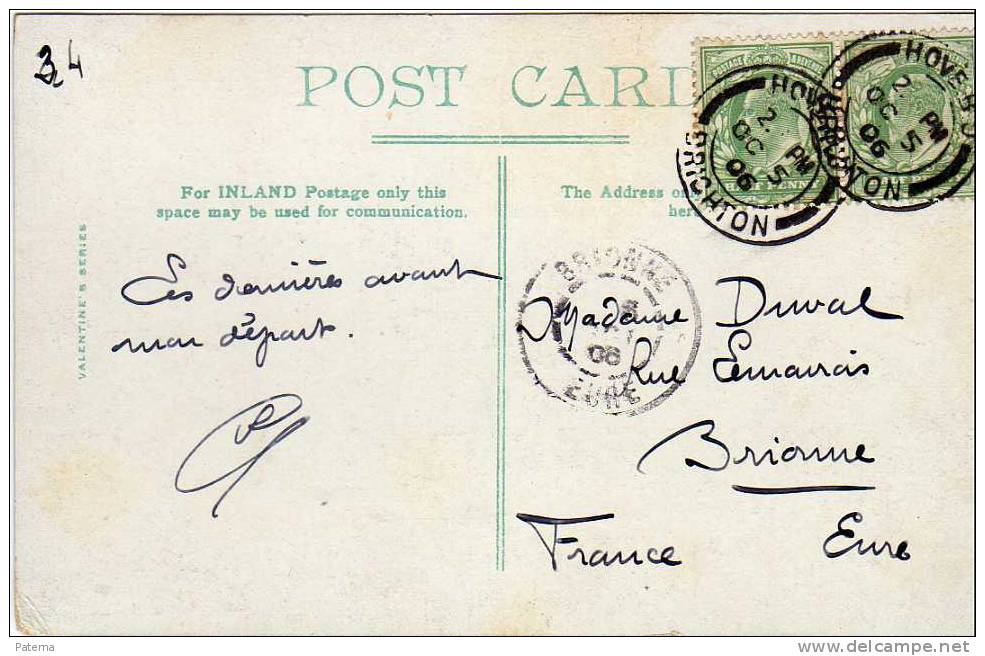 34
POST CARD
For INLAND Postage only this
space may be used for communication.
The Address only
here
VALENTINE'S SERIES
Ces dernières avant
mon départ.
Madame Duval
Rue Lemarois
Brionne
Eure
France
HOVE B.O
BRIGHTON
2. PM
OC 5
06
HOVE B.O
BRIGHTON
2. PM
OC 5
06
POSTAGE & REVENUE
HALF PENNY
BRIONNE
06
EURE
Paterna
www.delcampe.net